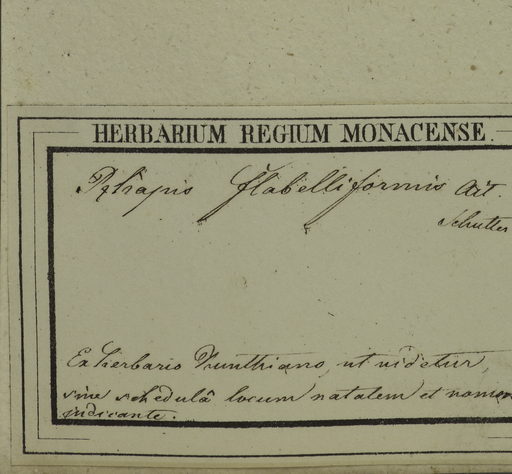 HERBARIUM REGIUM MONACENSE.
Rhapis flabelliformis Ait.
Schultes
Ex herbario Kunthiano, ut videtur,
sine schedulâ locum natalem et nomen
indicante.